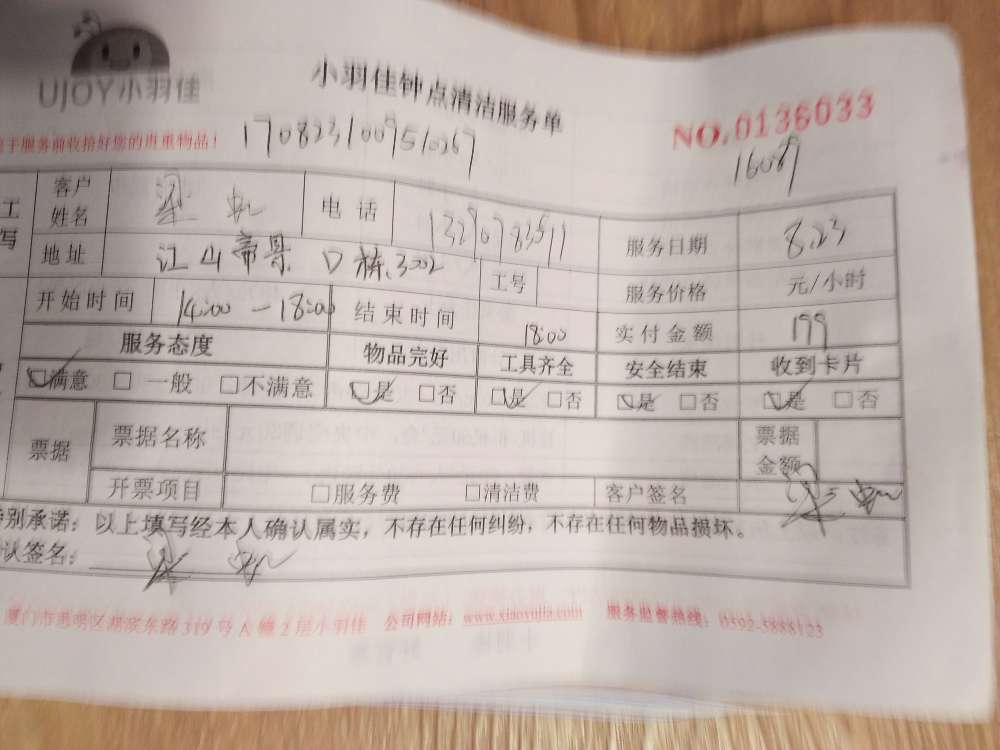 UJOY小羽佳
小羽佳钟点清洁服务单
NO.0136033
于服务前收拾好您的贵重物品!
1708231009510267
16089
工 客户姓名 电话 服务日期 8.23
写 地址 江山帝景 D栋.3002 工号 服务价格 元/小时
开始时间 14:00-18:00 结束时间 18:00 实付金额 199
服务态度 物品完好 工具齐全 安全结束 收到卡片
☑满意 □一般 □不满意 ☑是 □否 ☑是 □否 ☑是 □否 ☑是 □否
票据 票据名称 票据金额
开票项目 □服务费 □清洁费 客户签名
别承诺:以上填写经本人确认属实,不存在任何纠纷,不存在任何物品损坏。
认签名:
厦门市思明区湖滨东路319号A幢2层小羽佳 公司网站:www.xiaoyujia.com 服务监督热线:0592-5888123